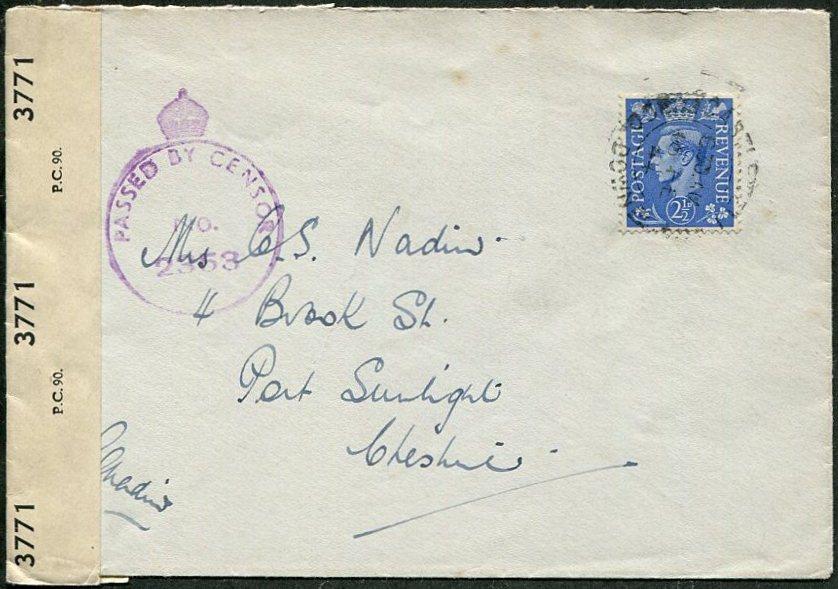 3771
P.C. 90.
3771
P.C. 90.
3771
PASSED BY CENSOR
NO.
2353
POSTAGE
REVENUE
2½D
Mrs C.S. Nadin
4 Brook St.
Port Sunlight
Cheshire
Nadin